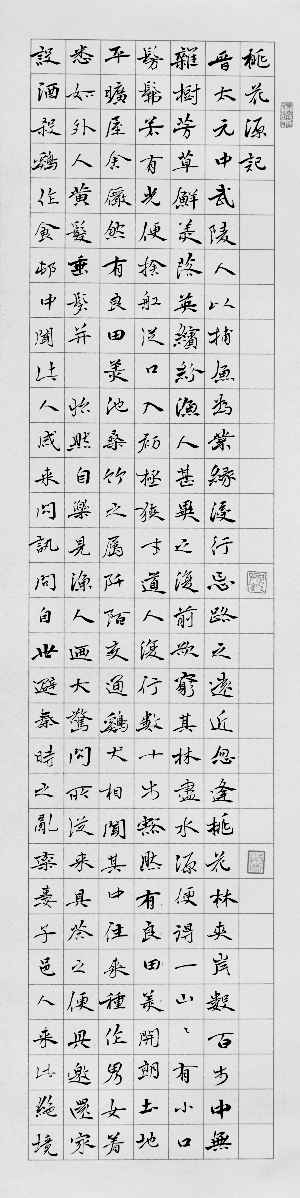 桃花源記
晉太元中武陵人以捕魚為業緣溪行忘路之遠近忽逢桃花林夾岸數百步中無
雜樹芳草鮮美落英繽紛漁人甚異之復前欲窮其林盡水源便得一山〻有小口
髣髴若有光便捨船從口入初極狹才通人復行數十步豁然有良田美開朗土地
平曠屋舍儼然有良田美池桑竹之屬阡陌交通鷄犬相聞其中往來種作男女着
悉如外人黃髮垂髫并怡然自樂見漁人迺大驚問所從來具答之便具邀還家
設酒殺鷄作食邨中聞此人咸來問訊問自世避秦時之亂率妻子邑人來此絕境